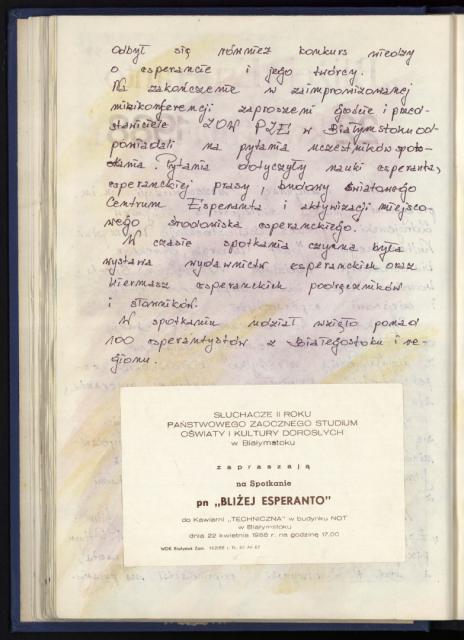 odbył się również konkurs wiedzy
o esperancie i jego twórcy.
Na zakończenie w zaimprowizowanej
minikonferencji zaproszeni goście i przed-
stawiciele ZOW PZE w Białymstoku od-
powiadali na pytania uczestników spot-
kania. Pytania dotyczyły nauki esperanta,
esperanckiej prasy, budowy Światowego
Centrum Esperanta i aktywizacji miejsco-
wego środowiska esperanckiego.
W czasie spotkania czynna była
wystawa wydawnictw esperanckich oraz
kiermasz esperanckich podręczników
i słowników.
W spotkaniu udział wzięło ponad
100 esperantystów z Białegostoku i re-
gionu.
SŁUCHACZE II ROKU
PAŃSTWOWEGO ZAOCZNEGO STUDIUM
OŚWIATY I KULTURY DOROSŁYCH
w Białymstoku
zapraszają
na Spotkanie
pn „BLIŻEJ ESPERANTO"
do Kawiarni „TECHNICZNA" w budynku NOT
w Białymstoku
dnia 22 kwietnia 1988 r. na godzinę 17.00
WDK Białystok Zam.